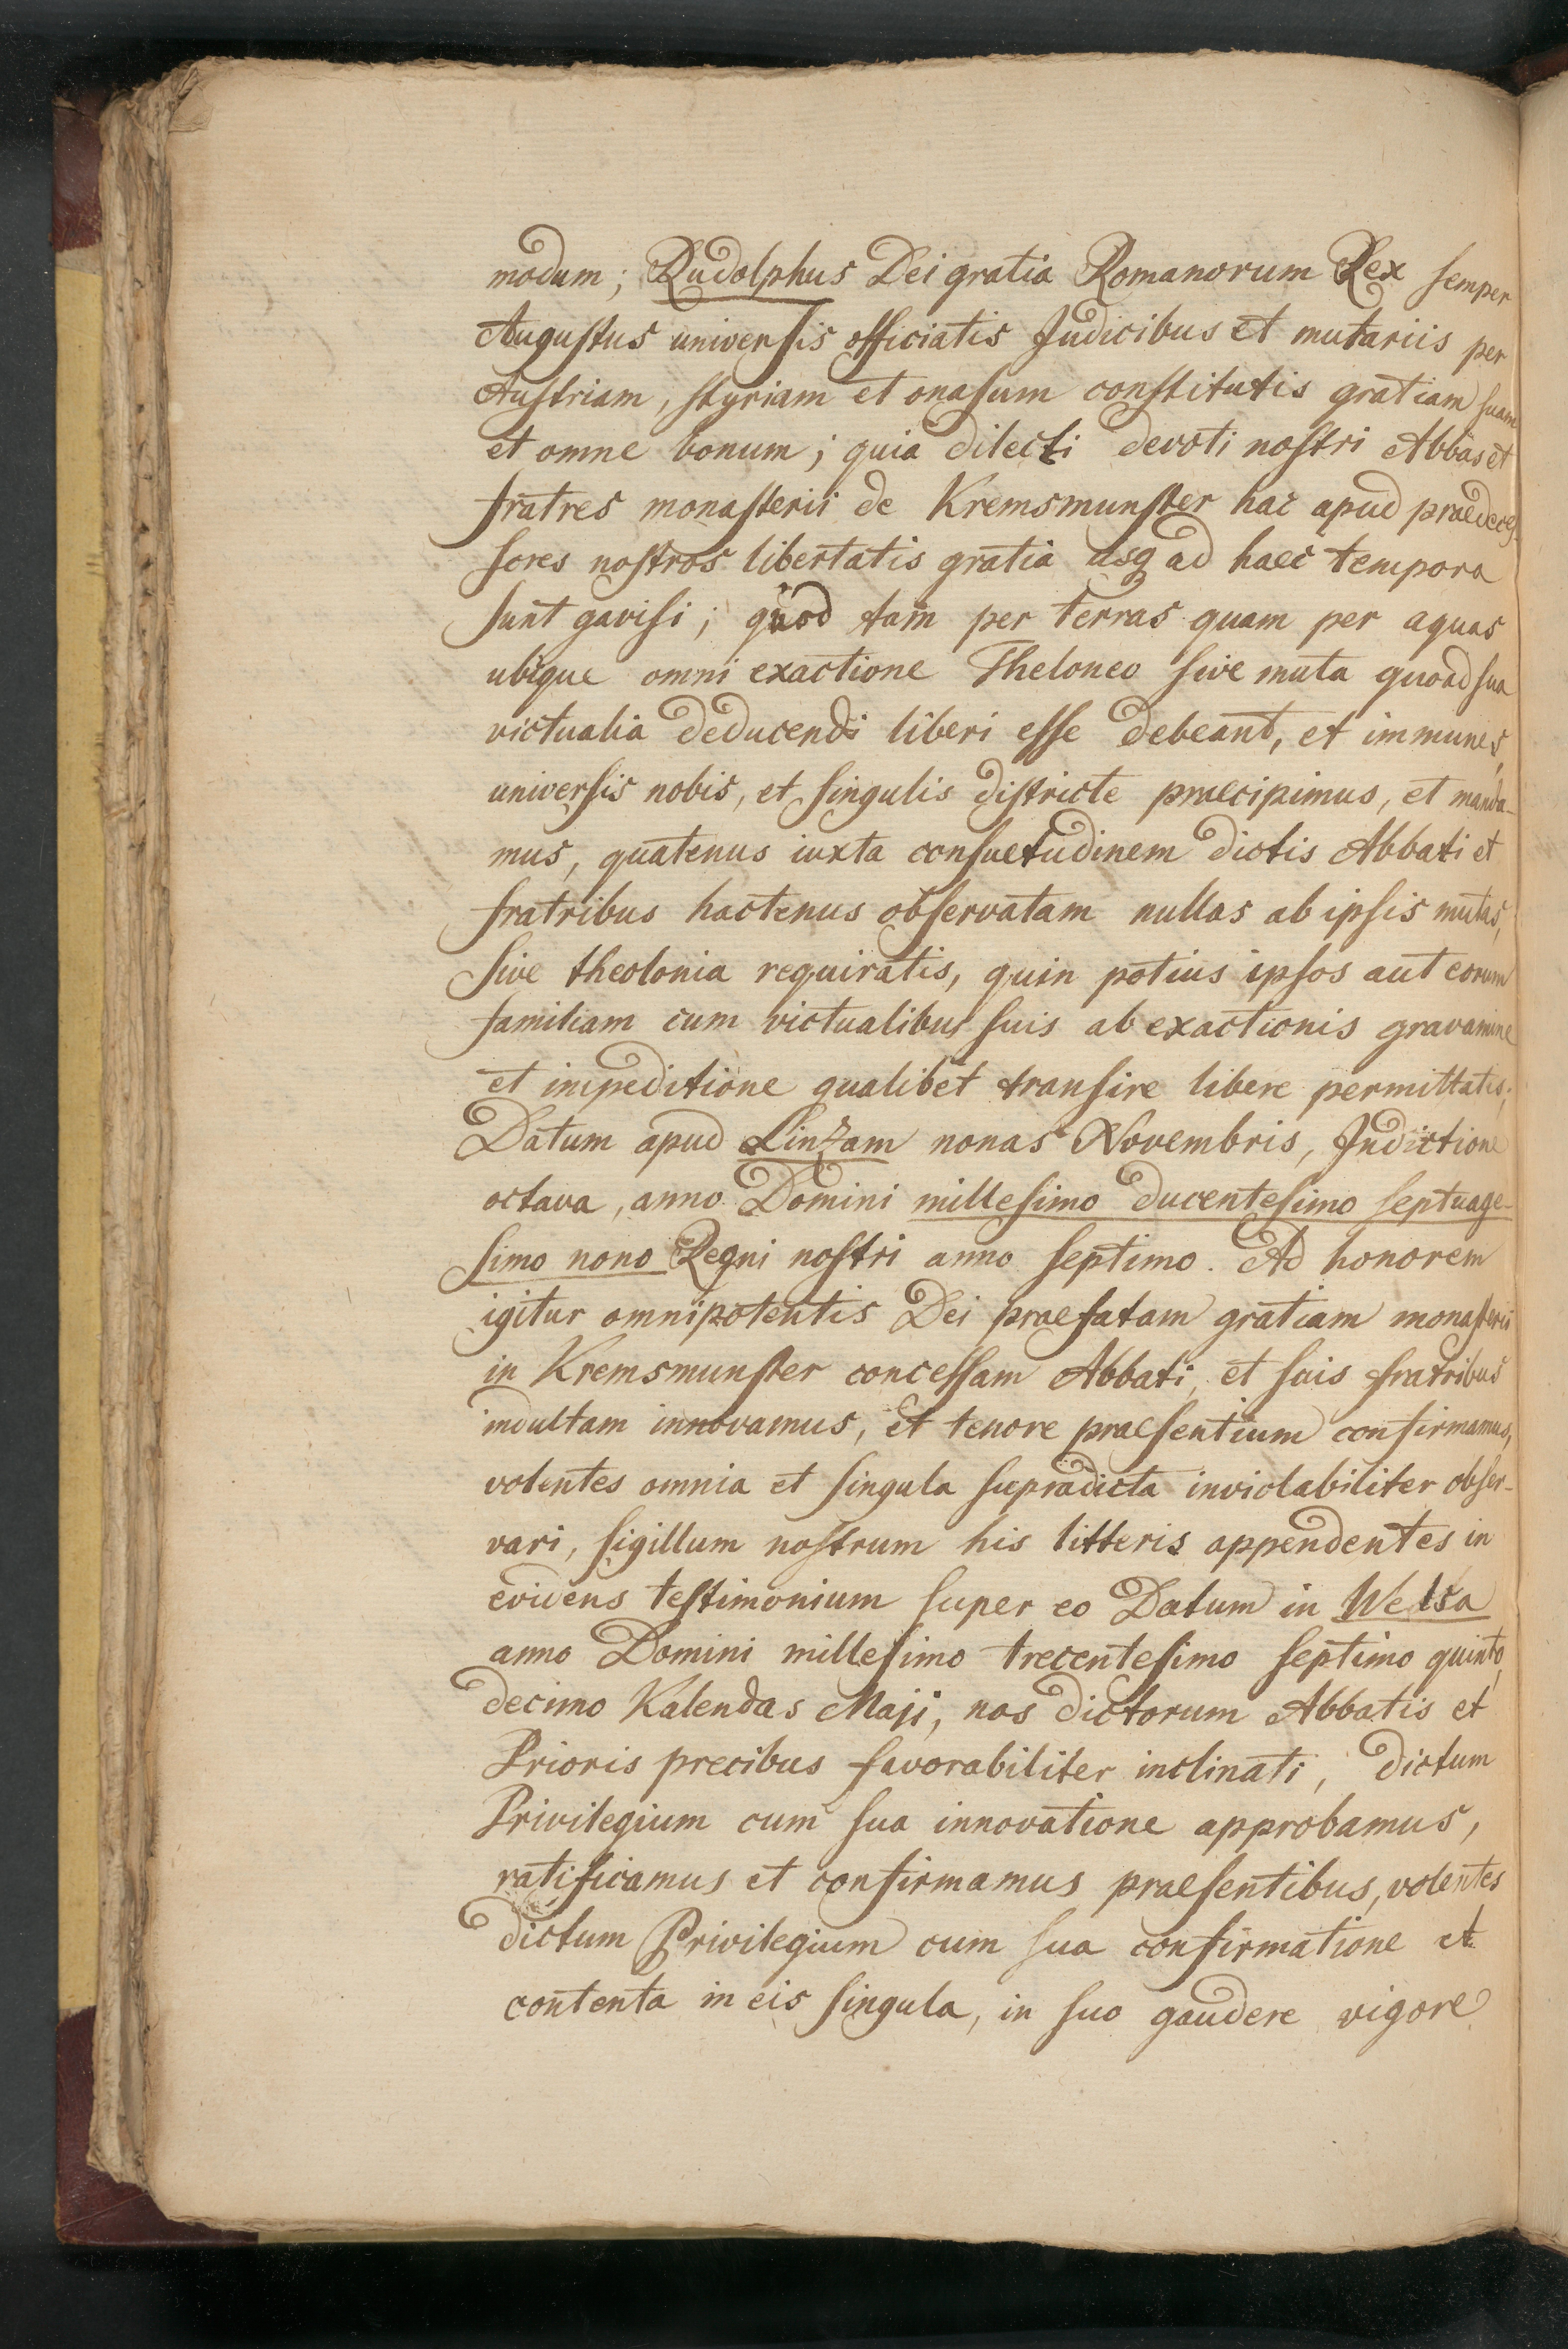 modum; Rudolphus Dei gratia Romanorum Rex semper
Augustus universis officiatis Judicibus et mutariis per
Austriam, styriam et onasum constitutis gratiam suam
et omne bonum; quia dilecti devoti nostri Abbas et
fratres monasterii de Kremsmunster hac apud praedeces-
sores nostros libertatis gratia usq ad haec tempora
sunt gavisi; quod tam per terras quam per aquas
ubique omni exactione Theloneo sive muta quoad sua
victualia deducendi liberi esse debeant, et immunes,
universis nobis, et singulis districte praecipimus, et manda-
mus, quatenus iuxta consuetudinem dictis Abbati et
fratribus hactenus observatam nullas ab ipsis mutas,
sive theolonia requiratis, quin potius ipsos aut eorum
familiam cum victualibus suis ab exactionis gravamine
et impeditione qualibet transire libere permittatis;
Datum apud Linzam nonas Novembris, Indictione
octava, anno Domini millesimo ducentesimo septuage-
simo nono Regni nostri anno septimo. Ad honorem
igitur omnipotentis Dei praefatam gratiam monasterii
in Kremsmunster concessam Abbati, et suis fratribus
indultam innovamus, et tenore praesentium confirmamus,
volentes omnia et singula supradicta inviolabiliter obser-
vari, sigillum nostrum his litteris appendentes in
evidens testimonium super eo Datum in Welsa
anno Domini millesimo trecentesimo septimo quinto
decimo Kalendas Maji, nos dictorum Abbatis et
Prioris precibus favorabiliter inclinati, dictum
Privilegium cum sua innovatione approbamus,
ratificamus et confirmamus praesentibus, volentes
dictum Privilegium cum sua confirmatione et
contenta in eis singula, in suo gaudere vigore